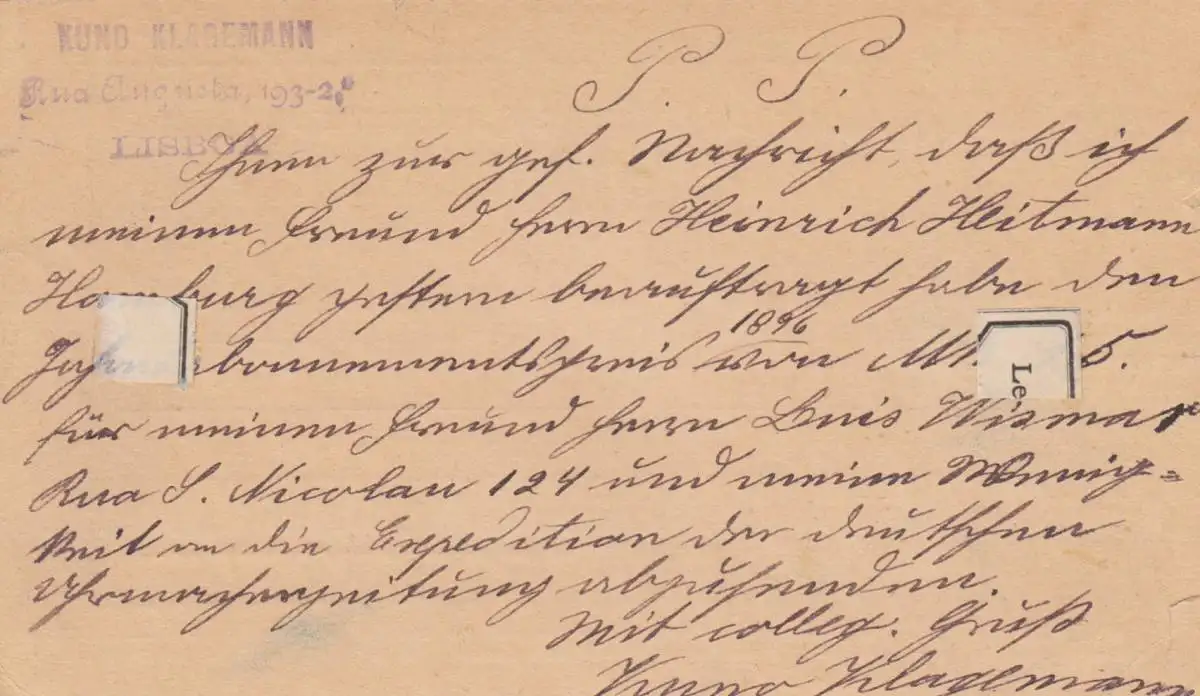 KUNO KLAGEMANN
Rua Augusta, 193-2º
LISBOA
P. P.
Ihnen zur gef. Nachricht, daß ich
meinen Freund Herrn Heinrich Heitmann
Hamburg gestern beauftragt habe den
1896
bonnementspreis von M 5.
für meinen Freund Herrn Luis Wismar
Rua S. Nicolau 124 und meine Wenig=
keit an die Expedition der deutschen
Uhrmacherzeitung abzusenden.
Mit colleg. Gruß
Kuno Klagemann
Le